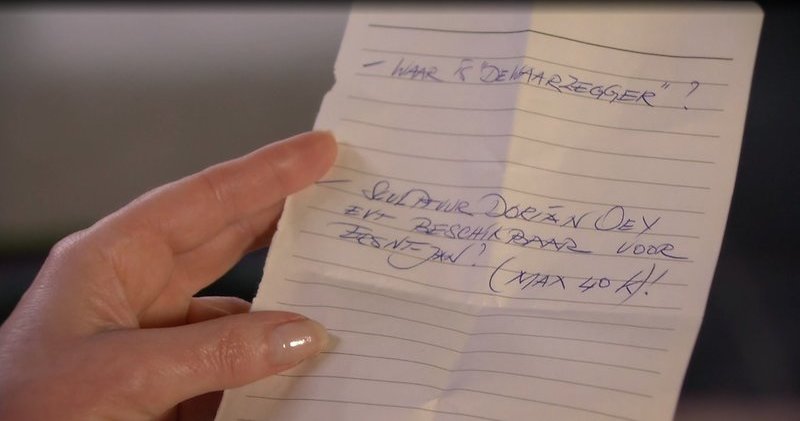 - WAAR IS "DE WAARZEGGER" ?
- SCULPTUUR DORIAN OEY
EVT BESCHIKBAAR VOOR
-JAN? (MAX 40 K)!